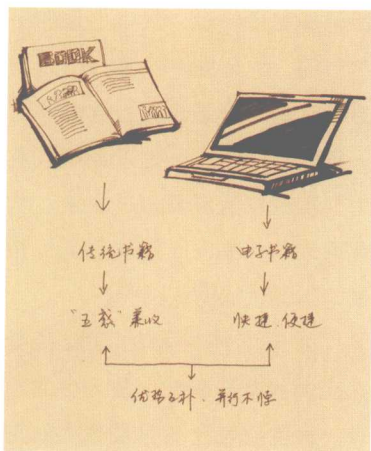 BOOK
传统书籍
电子书籍
"五感"兼收
快捷、便捷
优势互补、并行不悖